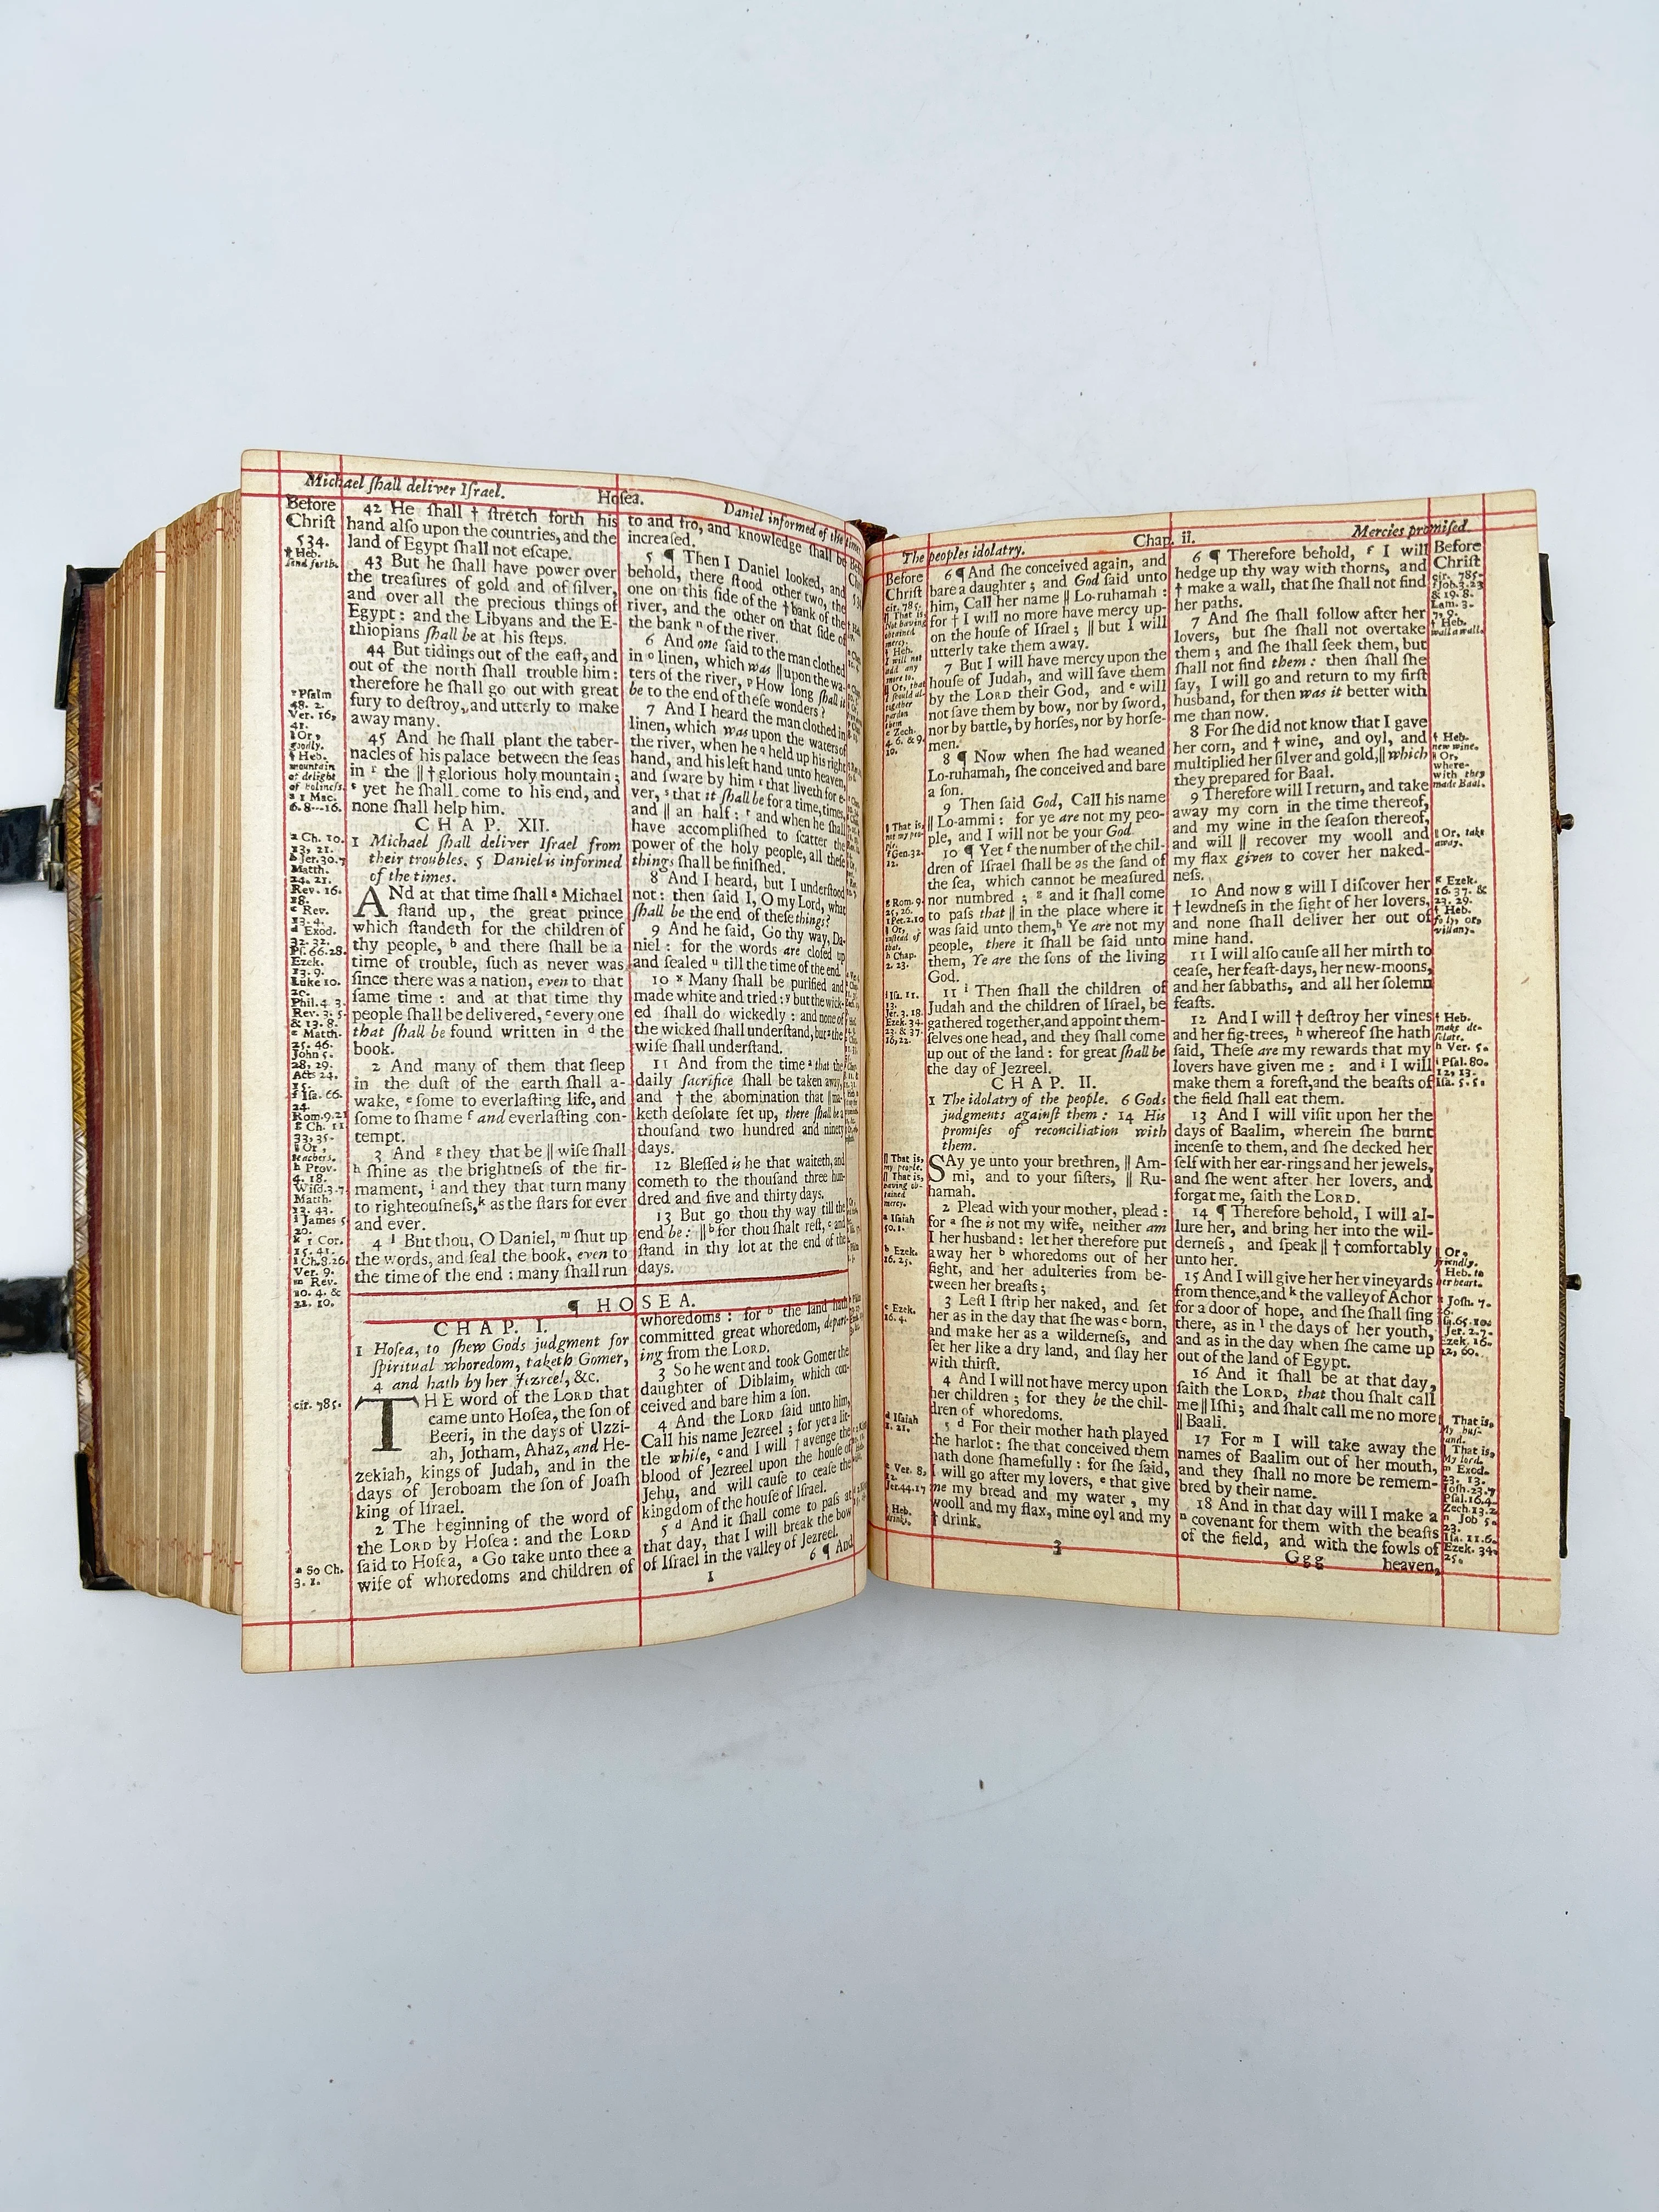 Michael ſhall deliver Iſrael.
Hoſea.
Daniel informed of the times.
Before
Chriſt
534.
† Heb.
ſend forth.
r Pſalm
48. 2.
Ver. 16,
41.
‖ Or,
goodly.
† Heb.
mountain
of delight
of holineſs.
s 1 Mac.
6. 8---16.
a Ch. 10.
13, 21.
b Jer. 30. 7
Matth.
24. 21.
Rev. 16.
18.
c Rev.
13. 4.
d Exod.
32. 32.
Pſ. 66. 28.
Ezek.
13. 9.
Luke 10.
20.
Phil. 4. 3.
Rev. 3. 5.
& 13. 8.
e Matth.
25. 46.
John 5.
28, 29.
Acts 24.
15.
f Iſa. 66.
24.
Rom. 9. 21
g Ch. 11.
33, 35.
‖ Or,
teachers.
h Prov.
4. 18.
Wiſd. 3. 7
Matth.
13. 43.
i James 5.
20.
k 1 Cor.
15. 41.
l Ch. 8. 26.
Ver. 9.
m Rev.
10. 4. &
22. 10.
cir. 785.
a So Ch.
3. 1.
42 He ſhall † ſtretch forth his
hand alſo upon the countries, and the
land of Egypt ſhall not eſcape.
43 But he ſhall have power over
the treaſures of gold and of ſilver,
and over all the precious things of
Egypt: and the Libyans and the E-
thiopians ſhall be at his ſteps.
44 But tidings out of the eaſt, and
out of the north ſhall trouble him:
therefore he ſhall go out with great
fury to deſtroy, and utterly to make
away many.
45 And he ſhall plant the taber-
nacles of his palace between the ſeas
in r the ‖ † glorious holy mountain;
s yet he ſhall come to his end, and
none ſhall help him.
CHAP. XII.
1 Michael ſhall deliver Iſrael from
their troubles. 5 Daniel is informed
of the times.
ANd at that time ſhall a Michael
ſtand up, the great prince
which ſtandeth for the children of
thy people, b and there ſhall be a
time of trouble, ſuch as never was
ſince there was a nation, even to that
ſame time: and at that time thy
people ſhall be delivered, c every one
that ſhall be found written in d the
book.
2 And many of them that ſleep
in the duſt of the earth ſhall a-
wake, e ſome to everlaſting life, and
ſome to ſhame f and everlaſting con-
tempt.
3 And g they that be ‖ wiſe ſhall
h ſhine as the brightneſs of the fir-
mament, i and they that turn many
to righteouſneſs, k as the ſtars for ever
and ever.
4 l But thou, O Daniel, m ſhut up
the words, and ſeal the book, even to
the time of the end: many ſhall run
to and fro, and knowledge ſhall be
increaſed.
5 ¶ Then I Daniel looked, and
behold, there ſtood other two, the
one on this ſide of the † bank of the
river, and the other on that ſide of
the bank n of the river.
6 And one ſaid to the man clothed
in o linen, which was ‖ upon the wa-
ters of the river, p How long ſhall it
be to the end of theſe wonders?
7 And I heard the man clothed in
linen, which was upon the waters of
the river, when he q held up his right
hand, and his left hand unto heaven,
and ſware by him r that liveth for e-
ver, s that it ſhall be for a time, times,
and ‖ an half: t and when he ſhall
have accompliſhed to ſcatter the
power of the holy people, all theſe
things ſhall be finiſhed.
8 And I heard, but I underſtood
not: then ſaid I, O my Lord, what
ſhall be the end of theſe things?
9 And he ſaid, Go thy way, Da-
niel: for the words are cloſed up
and ſealed u till the time of the end.
10 x Many ſhall be purified and
made white and tried: y but the wick-
ed ſhall do wickedly: and none of
the wicked ſhall underſtand, but z the
wiſe ſhall underſtand.
11 And from the time a that the
daily ſacrifice ſhall be taken away,
and † the abomination that ‖ ma-
keth deſolate ſet up, there ſhall be a
thouſand two hundred and ninety
days.
12 Bleſſed is he that waiteth, and
cometh to the thouſand three hun-
dred and five and thirty days.
13 But go thou thy way till the
end be: ‖ b for thou ſhalt reſt, c and
ſtand in thy lot at the end of the
days.
¶ HOSEA.
CHAP. I.
1 Hoſea, to ſhew Gods judgment for
ſpiritual whoredom, taketh Gomer,
4 and hath by her Jezreel, &c.
THE word of the LORD that
came unto Hoſea, the ſon of
Beeri, in the days of Uzzi-
ah, Jotham, Ahaz, and He-
zekiah, kings of Judah, and in the
days of Jeroboam the ſon of Joaſh
king of Iſrael.
2 The beginning of the word of
the LORD by Hoſea: and the LORD
ſaid to Hoſea, a Go take unto thee a
wife of whoredoms and children of
whoredoms: for b the land hath
committed great whoredom, depart-
ing from the LORD.
3 So he went and took Gomer the
daughter of Diblaim, which con-
ceived and bare him a ſon.
4 And the LORD ſaid unto him,
Call his name Jezreel; for yet a lit-
tle while, c and I will † avenge the
blood of Jezreel upon the houſe of
Jehu, and will cauſe to ceaſe the
kingdom of the houſe of Iſrael.
5 d And it ſhall come to paſs at
that day, that I will break the bow
of Iſrael in the valley of Jezreel.
6 ¶ And
1
The peoples idolatry.
Chap. ii.
Mercies promiſed.
Before
Chriſt
cir. 785.
‖ That is,
Not having
obtained
mercy.
† Heb.
I will not
add any
more to.
‖ Or, that
I ſhould al-
together
pardon
them
e Zech.
4. 6. & 9.
10.
‖ That is,
not my peo-
ple.
f Gen. 32.
12.
g Rom. 9.
25, 26.
1 Pet. 2. 10
‖ Or,
inſtead of
that.
h Chap.
2. 23.
i Iſa. 11.
13.
Jer. 3. 18.
Ezek. 34.
23. & 37.
16, 22.
‖ That is,
my people.
‖ That is,
having ob-
tained
mercy.
a Iſaiah
50. 1.
b Ezek.
16. 25.
c Ezek.
16. 4.
d Iſaiah
1. 21.
e Ver. 8,
12.
Jer. 44. 17
† Heb.
drinks.
6 ¶ And ſhe conceived again, and
bare a daughter; and God ſaid unto
him, Call her name ‖ Lo-ruhamah:
for † I will no more have mercy up-
on the houſe of Iſrael; ‖ but I will
utterly take them away.
7 But I will have mercy upon the
houſe of Judah, and will ſave them
by the LORD their God, and e will
not ſave them by bow, nor by ſword,
nor by battle, by horſes, nor by horſe-
men.
8 ¶ Now when ſhe had weaned
Lo-ruhamah, ſhe conceived and bare
a ſon.
9 Then ſaid God, Call his name
‖ Lo-ammi: for ye are not my peo-
ple, and I will not be your God.
10 ¶ Yet f the number of the chil-
dren of Iſrael ſhall be as the ſand of
the ſea, which cannot be meaſured
nor numbred; g and it ſhall come
to paſs that ‖ in the place where it
was ſaid unto them, h Ye are not my
people, there it ſhall be ſaid unto
them, Ye are the ſons of the living
God.
11 i Then ſhall the children of
Judah and the children of Iſrael, be
gathered together, and appoint them-
ſelves one head, and they ſhall come
up out of the land: for great ſhall be
the day of Jezreel.
CHAP. II.
1 The idolatry of the people. 6 Gods
judgments againſt them: 14 His
promiſes of reconciliation with
them.
SAy ye unto your brethren, ‖ Am-
mi, and to your ſiſters, ‖ Ru-
hamah.
2 Plead with your mother, plead:
for a ſhe is not my wife, neither am
I her husband: let her therefore put
away her b whoredoms out of her
ſight, and her adulteries from be-
tween her breaſts;
3 Leſt I ſtrip her naked, and ſet
her as in the day that ſhe was c born,
and make her as a wilderneſs, and
ſet her like a dry land, and ſlay her
with thirſt.
4 And I will not have mercy upon
her children; for they be the chil-
dren of whoredoms.
5 d For their mother hath played
the harlot: ſhe that conceived them
hath done ſhamefully: for ſhe ſaid,
I will go after my lovers, e that give
me my bread and my water, my
wooll and my flax, mine oyl and my
† drink.
6 ¶ Therefore behold, f I will
hedge up thy way with thorns, and
† make a wall, that ſhe ſhall not find
her paths.
7 And ſhe ſhall follow after her
lovers, but ſhe ſhall not overtake
them; and ſhe ſhall ſeek them, but
ſhall not find them: then ſhall ſhe
ſay, I will go and return to my firſt
husband, for then was it better with
me than now.
8 For ſhe did not know that I gave
her corn, and † wine, and oyl, and
multiplied her ſilver and gold, ‖ which
they prepared for Baal.
9 Therefore will I return, and take
away my corn in the time thereof,
and my wine in the ſeaſon thereof,
and will ‖ recover my wooll and
my flax given to cover her naked-
neſs.
10 And now g will I diſcover her
† lewdneſs in the ſight of her lovers,
and none ſhall deliver her out of
mine hand.
11 I will alſo cauſe all her mirth to
ceaſe, her feaſt-days, her new-moons,
and her ſabbaths, and all her ſolemn
feaſts.
12 And I will † deſtroy her vines
and her fig-trees, h whereof ſhe hath
ſaid, Theſe are my rewards that my
lovers have given me: and i I will
make them a foreſt, and the beaſts of
the field ſhall eat them.
13 And I will viſit upon her the
days of Baalim, wherein ſhe burnt
incenſe to them, and ſhe decked her
ſelf with her ear-rings and her jewels,
and ſhe went after her lovers, and
forgat me, ſaith the LORD.
14 ¶ Therefore behold, I will al-
lure her, and bring her into the wil-
derneſs, and ſpeak ‖ † comfortably
unto her.
15 And I will give her her vineyards
from thence, and k the valley of Achor
for a door of hope, and ſhe ſhall ſing
there, as in l the days of her youth,
and as in the day when ſhe came up
out of the land of Egypt.
16 And it ſhall be at that day,
ſaith the LORD, that thou ſhalt call
me ‖ Iſhi; and ſhalt call me no more
‖ Baali.
17 For m I will take away the
names of Baalim out of her mouth,
and they ſhall no more be remem-
bred by their name.
18 And in that day will I make a
n covenant for them with the beaſts
of the field, and with the fowls of
Ggg
heaven,
Before
Chriſt
cir. 785.
f Job 3. 23
& 19. 8.
Lam. 3.
7, 9.
† Heb.
wall a wall.
† Heb.
new wine.
‖ Or,
where-
with they
made Baal.
‖ Or, take
away.
g Ezek.
16. 37. &
23. 29.
† Heb.
folly, or,
villany.
† Heb.
make de-
ſolate.
h Ver. 5.
i Pſal. 80.
12, 13.
Iſa. 5. 5.
‖ Or,
friendly.
† Heb. to
her heart.
k Joſh. 7.
26.
Iſa. 65. 10.
l Jer. 2. 7.
Ezek. 16.
22, 60.
‖ That is,
My huſ-
band.
‖ That is,
My lord.
m Exod.
23. 13.
Joſh. 23. 7
Pſal. 16. 4.
Zech. 13. 2
n Job 5.
23.
Iſa. 11. 6.
Ezek. 34.
25.